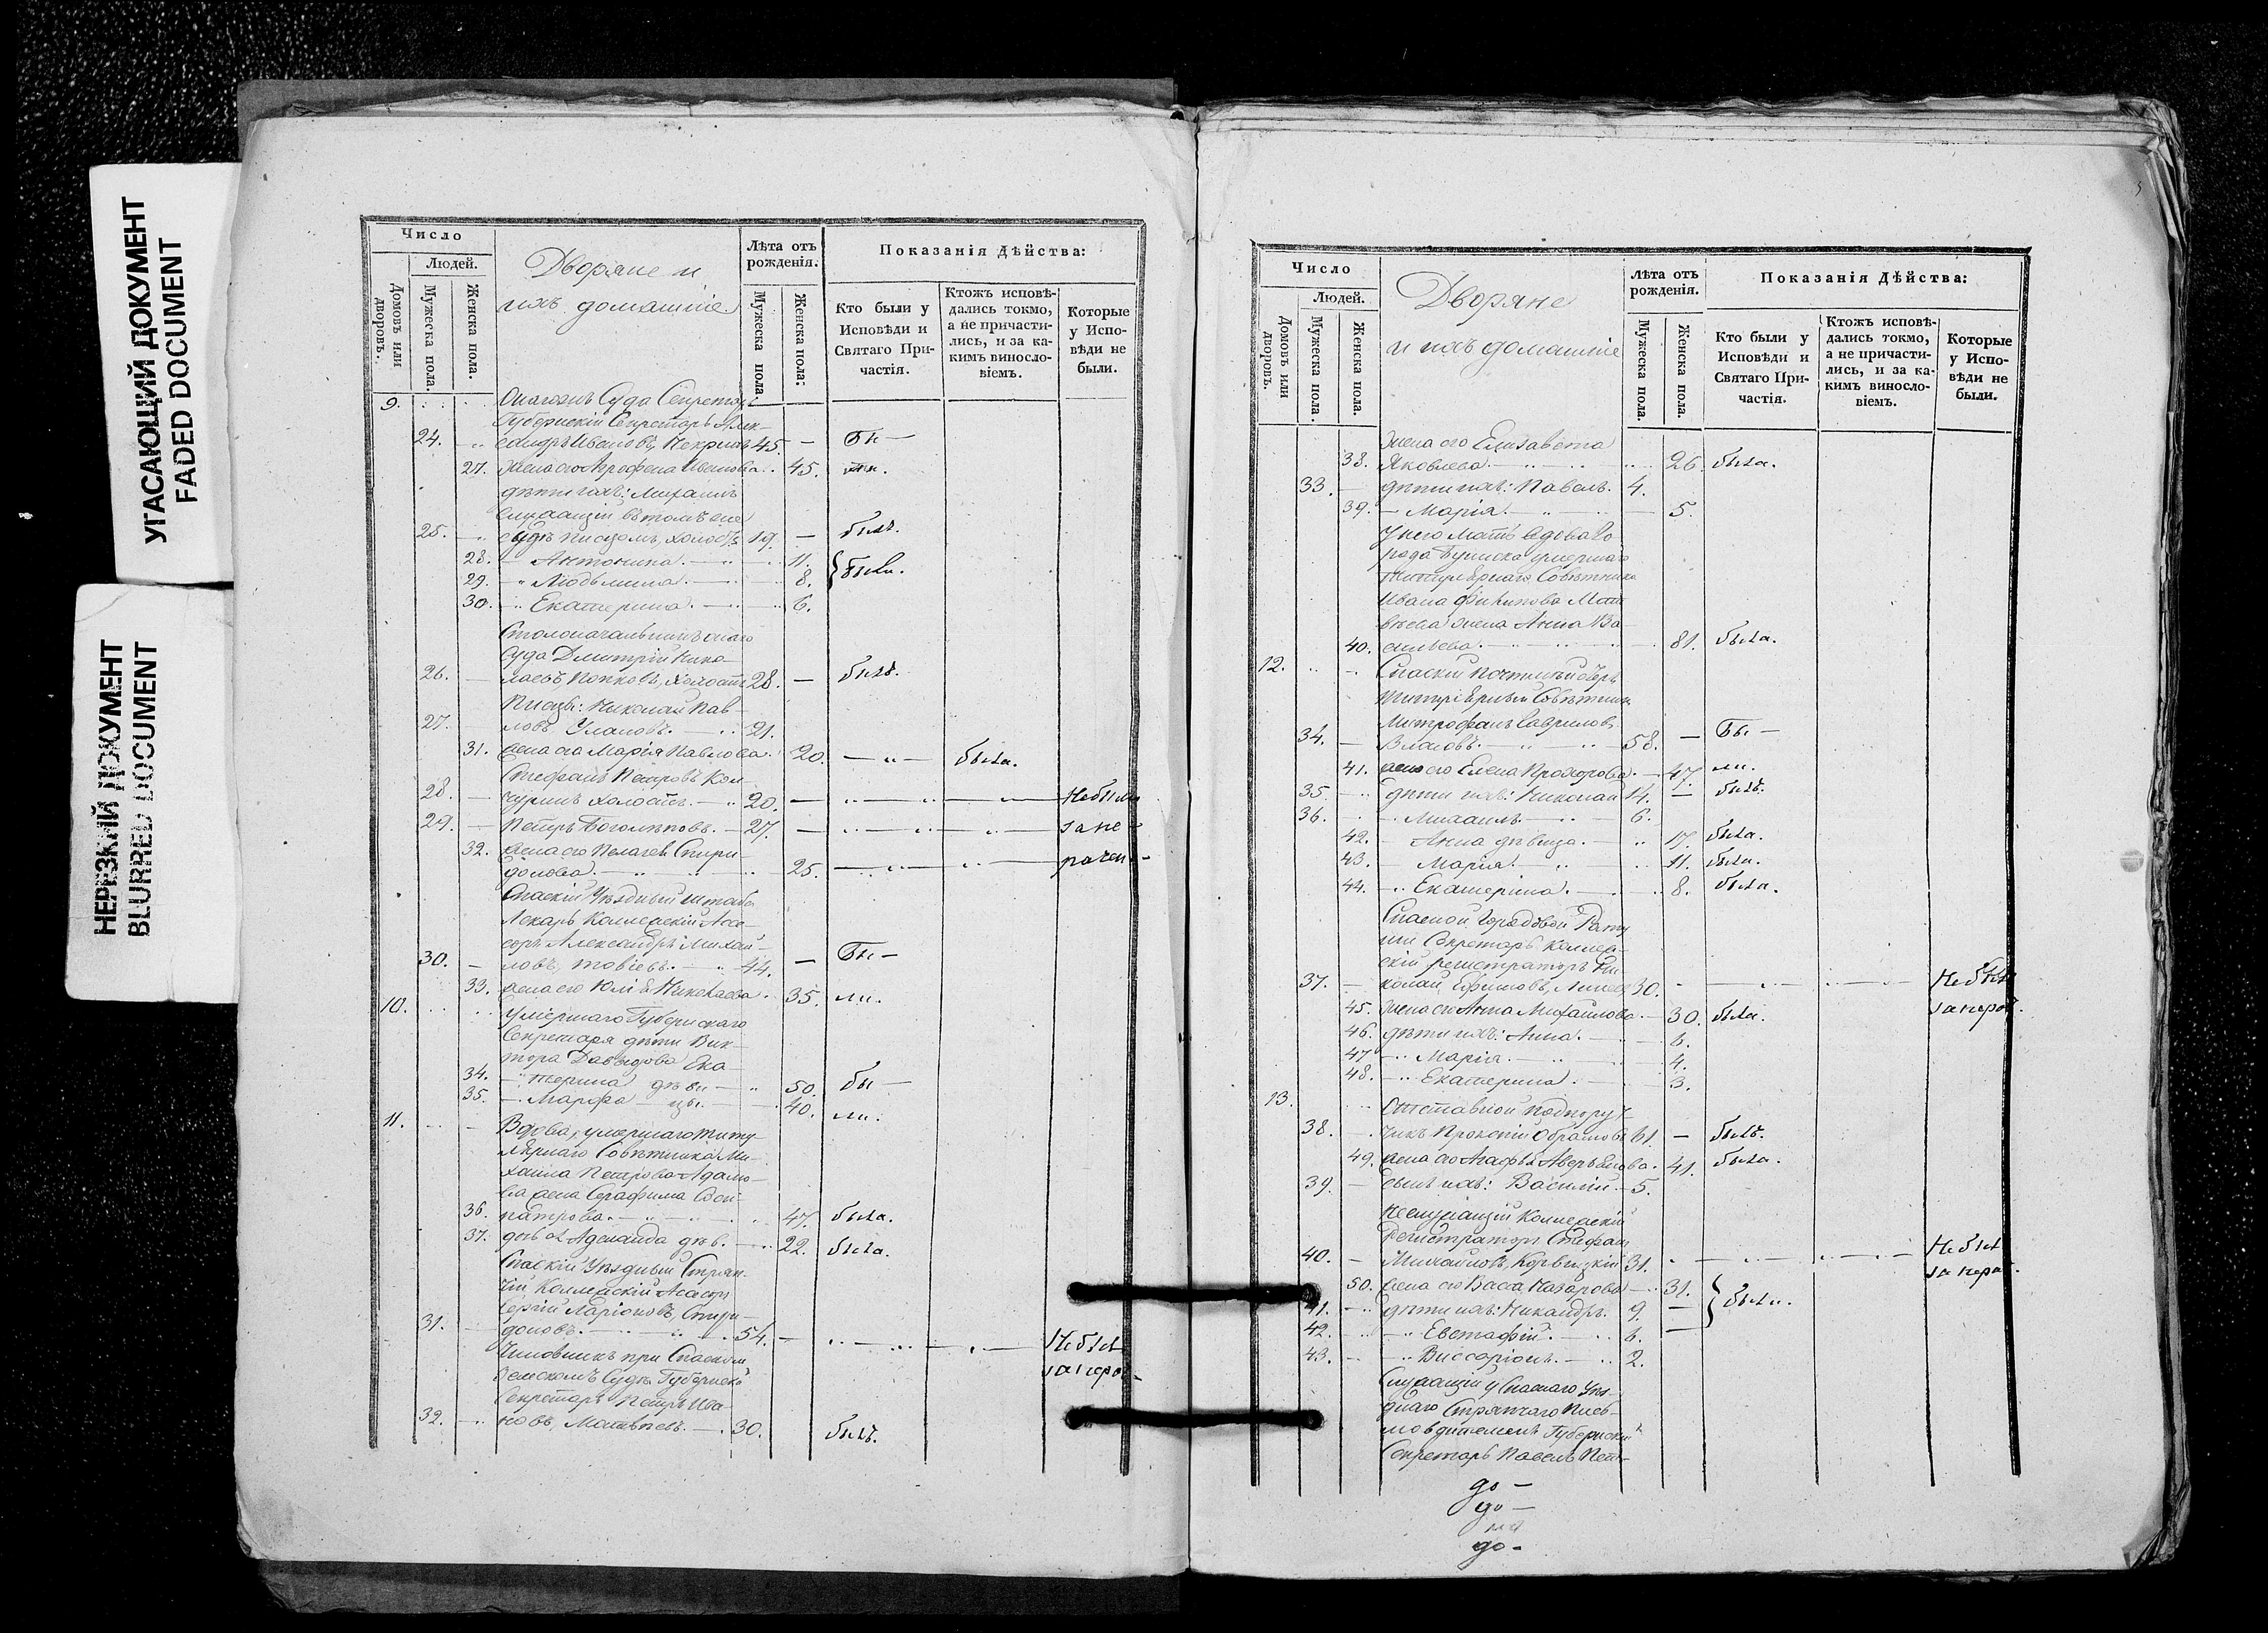 УГАСАЮЩИЙ ДОКУМЕНТ
FADED DOCUMENT
НЕРЕЗКИЙ ДОКУМЕНТ
BLURRED DOCUMENT
Число
Людей.
Домовъ или дворовъ.
Мужеска пола.
Женска пола.
Дворяне и
ихъ домашніе.
Лѣта отъ рожденія.
Мужеска пола
Женска пола:
Показанія Дѣйства:
Кто были у Исповѣди и Святаго Причастія.
Ктожъ исповѣдались токмо, а не причастились, и за какимъ винословіемъ.
Которые у Исповѣди не были.
9. Онагожъ Суда Секретарь
Губернскій Секретарь Алек-
24. сандръ Ивановъ 45. — Бы —
27. жена его Ивановa 45. ли.
дѣти ихъ: Михаилъ
служащій въ томъ же
25. судѣ писцомъ, холостъ 19. — былъ.
28. — Антонина. 11. были.
29. — Людмила. 8.
30. — Екатерина. 6.
Столоначальникъ онаго
Суда Дмитрій Нико-
26. лаевъ, Попковъ, холостъ 28. — былъ.
Писцы: Николай Пав-
27. ловъ Улановъ. 21.
31. жена его Марія Павлова. 20. была.
Стефанъ Петровъ Кон-
28. чуринъ холостъ. 20. Небыли
29. Петръ Боголѣповъ. 27. за не
32. жена его Пелагея Спири-
донова. 25. рачен-
Спаскій Уѣздный Штабъ
Лекарь Коллежскій Ассе-
соръ Александръ Михай-
30. ловъ, 44. — Бы —
33. жена его Юлія Николаева. 35. ли.
10. Умершаго Губернскаго
Секретаря дѣти Вик-
тора Давыдова Ека-
34. терина дѣви- 50. бы —
35. — Марфа — цы. 40. ли.
11. Вдова, умершаго титу-
лярнаго Совѣтника Ми-
хаила Петрова Адамо-
ва жена Серафима Соси-
36. патрова. 47. была.
37. дочь ея Аделаида дѣв. 22. была.
Спаскій Уѣздный Стряп-
чій Коллежскій Асесоръ
Сергій Ларіоновъ, Спири-
31. доновъ. 54. Небыл
за нерач-
Чиновникъ при Спаскомъ
Земскомъ Судѣ Губернскій
Секретарь Петръ Ива-
32. новъ, Матвѣевъ. 30. былъ.
Число
Людей.
Домовъ или дворовъ.
Мужеска пола
Женска пола.
Дворяне
и ихъ домашніе
Лѣта отъ рожденія.
Мужеска пола.
Женска пола.
Показанія Дѣйства:
Кто были у Исповѣди и Святаго Причастія.
Ктожъ исповѣдались токмо, а не причастились, и за какимъ винословіемъ.
Которые у Исповѣди не были.
жена его Елизавета
38. Яковлева. 26. была.
33. дѣти ихъ: Павелъ. 4.
39. — Марія. 5.
У него Мать вдова
умершаго
Титулярнаго Совѣтника
Ивана Филипова Мат
вѣева жена Анна Ва
40. сильева. 81. была.
12. Спаскій Почтмейстеръ
Титулярный Совѣтникъ
Митрофанъ Гавриловъ
34. Власовъ. 58. — Бы —
41. жена его Елена Прохорова. 47. ли.
35. дѣти ихъ: Николай 14. — былъ.
36. — Михаилъ 6.
42. — Анна дѣвица. 17. была.
43. Марія. 11. была.
44. Екатерина. 8. была.
Спаской Городовой Рату
ши Секретарь Коллеж-
скій регистраторъ Ни-
37. колай Ефимовъ, 30. Небыл
45. жена его Анна Михайлова. 30. была. за нерач.
46. дѣти ихъ: Анна. 6.
47. Марія. 4.
48. Екатерина. 3.
13. Отставной подпору-
38. чикъ Прокопій Обрамовъ 61. — былъ.
49. жена его Агафья Аверьянова. 41. была.
39. сынъ ихъ: Василій. 5.
Неслужащій Коллежскій
Регистраторъ Стефанъ
40. Михайловъ, 31. Небыл
за нерач.
50. жена его Васса Назарова 31. были.
41. дѣти ихъ: Никандръ. 9. —
42. Евстафій. 6. —
43. Виссаріонъ. 2.
Служащій у Спаскаго Уѣз-
днаго Стряпчаго Пись-
моводителемъ Губернскій
Секретарь Павелъ Пет-
до —
до —
до -